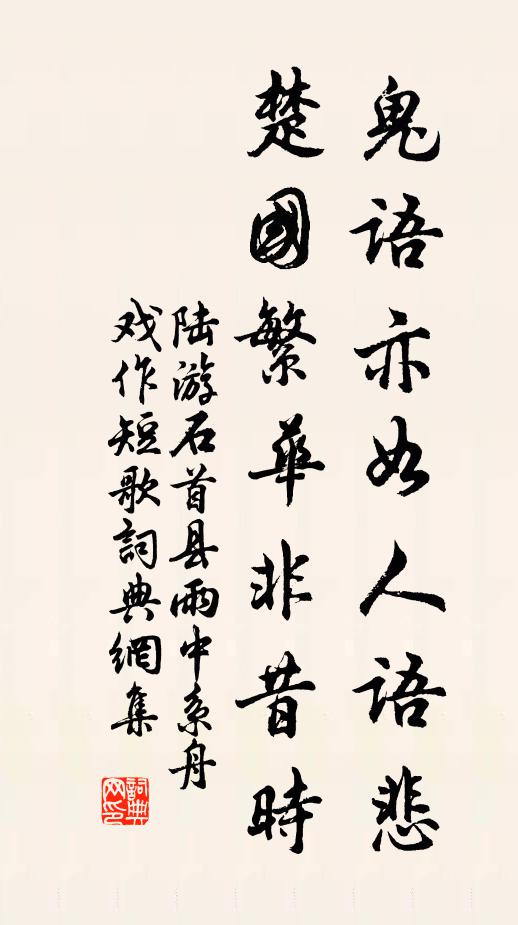 鬼語亦如人語悲
楚國繁華非昔時
陆游石首县雨中系舟
戏作短歌詞典網集
詞典
网印